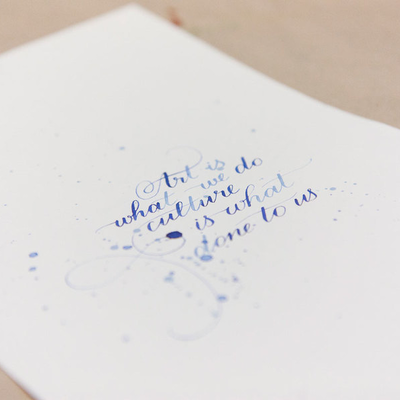 Art is
what we do
culture
is what
done to us